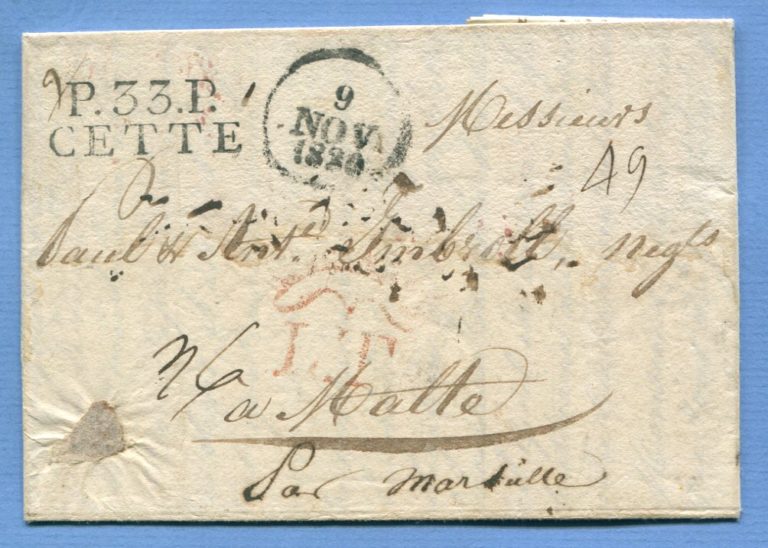 P.33.P.
CETTE
9
NOV
1820
Messieurs
49
Paul & Imbroll, Negts
LT
a Malte
Par Marseille